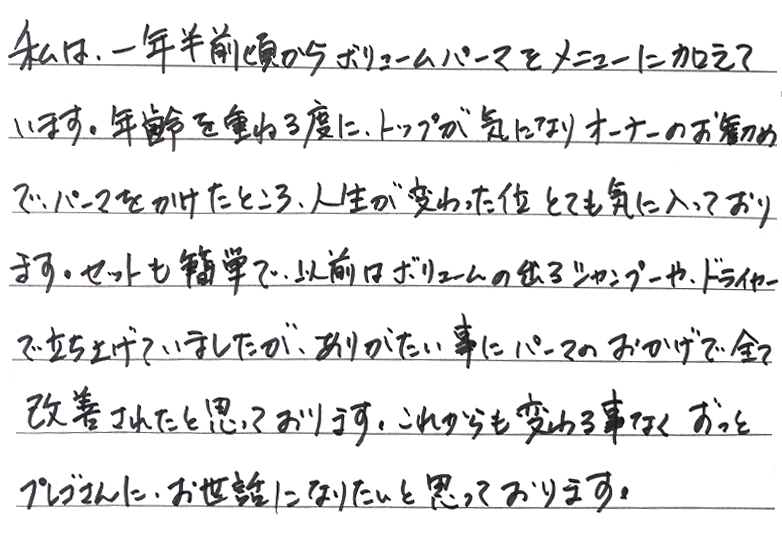 私は、一年半前頃からボリュームパーマをメニューに加えて
います。年齢を重ねる度に、トップが気になりオーナーのお勧め
で、パーマをかけたところ、人生が変わった位とても気に入っており
ます。セットも簡単で、以前はボリュームの出るシャンプーや、ドライヤー
で立ち上げていましたが、ありがたい事にパーマのおかげで全て
改善されたと思っております。これからも変わる事なくずっと
プレゴさんに、お世話になりたいと思っております。